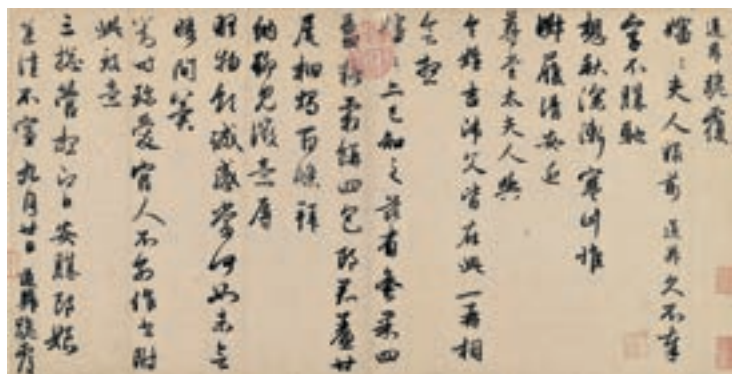 道昇跪覆
嬸〻夫人粧前道昇久不奉
字不勝馳
想秋深漸寒計惟
淑履清安近
尊堂太夫人與
令姪吉師父皆在此一再相
會想
嬸〻亦已知之茲有蜜果四
糖霜餅四包郎君鯗廿
尾桕燭百條拜
納聊見微意辱
物領誠感當何如未會
晤間冀
對時珍愛官人不別作書附
此致意
三總管想即日安勝郎娘
悉佳不宣 九月廿日道昇跪覆